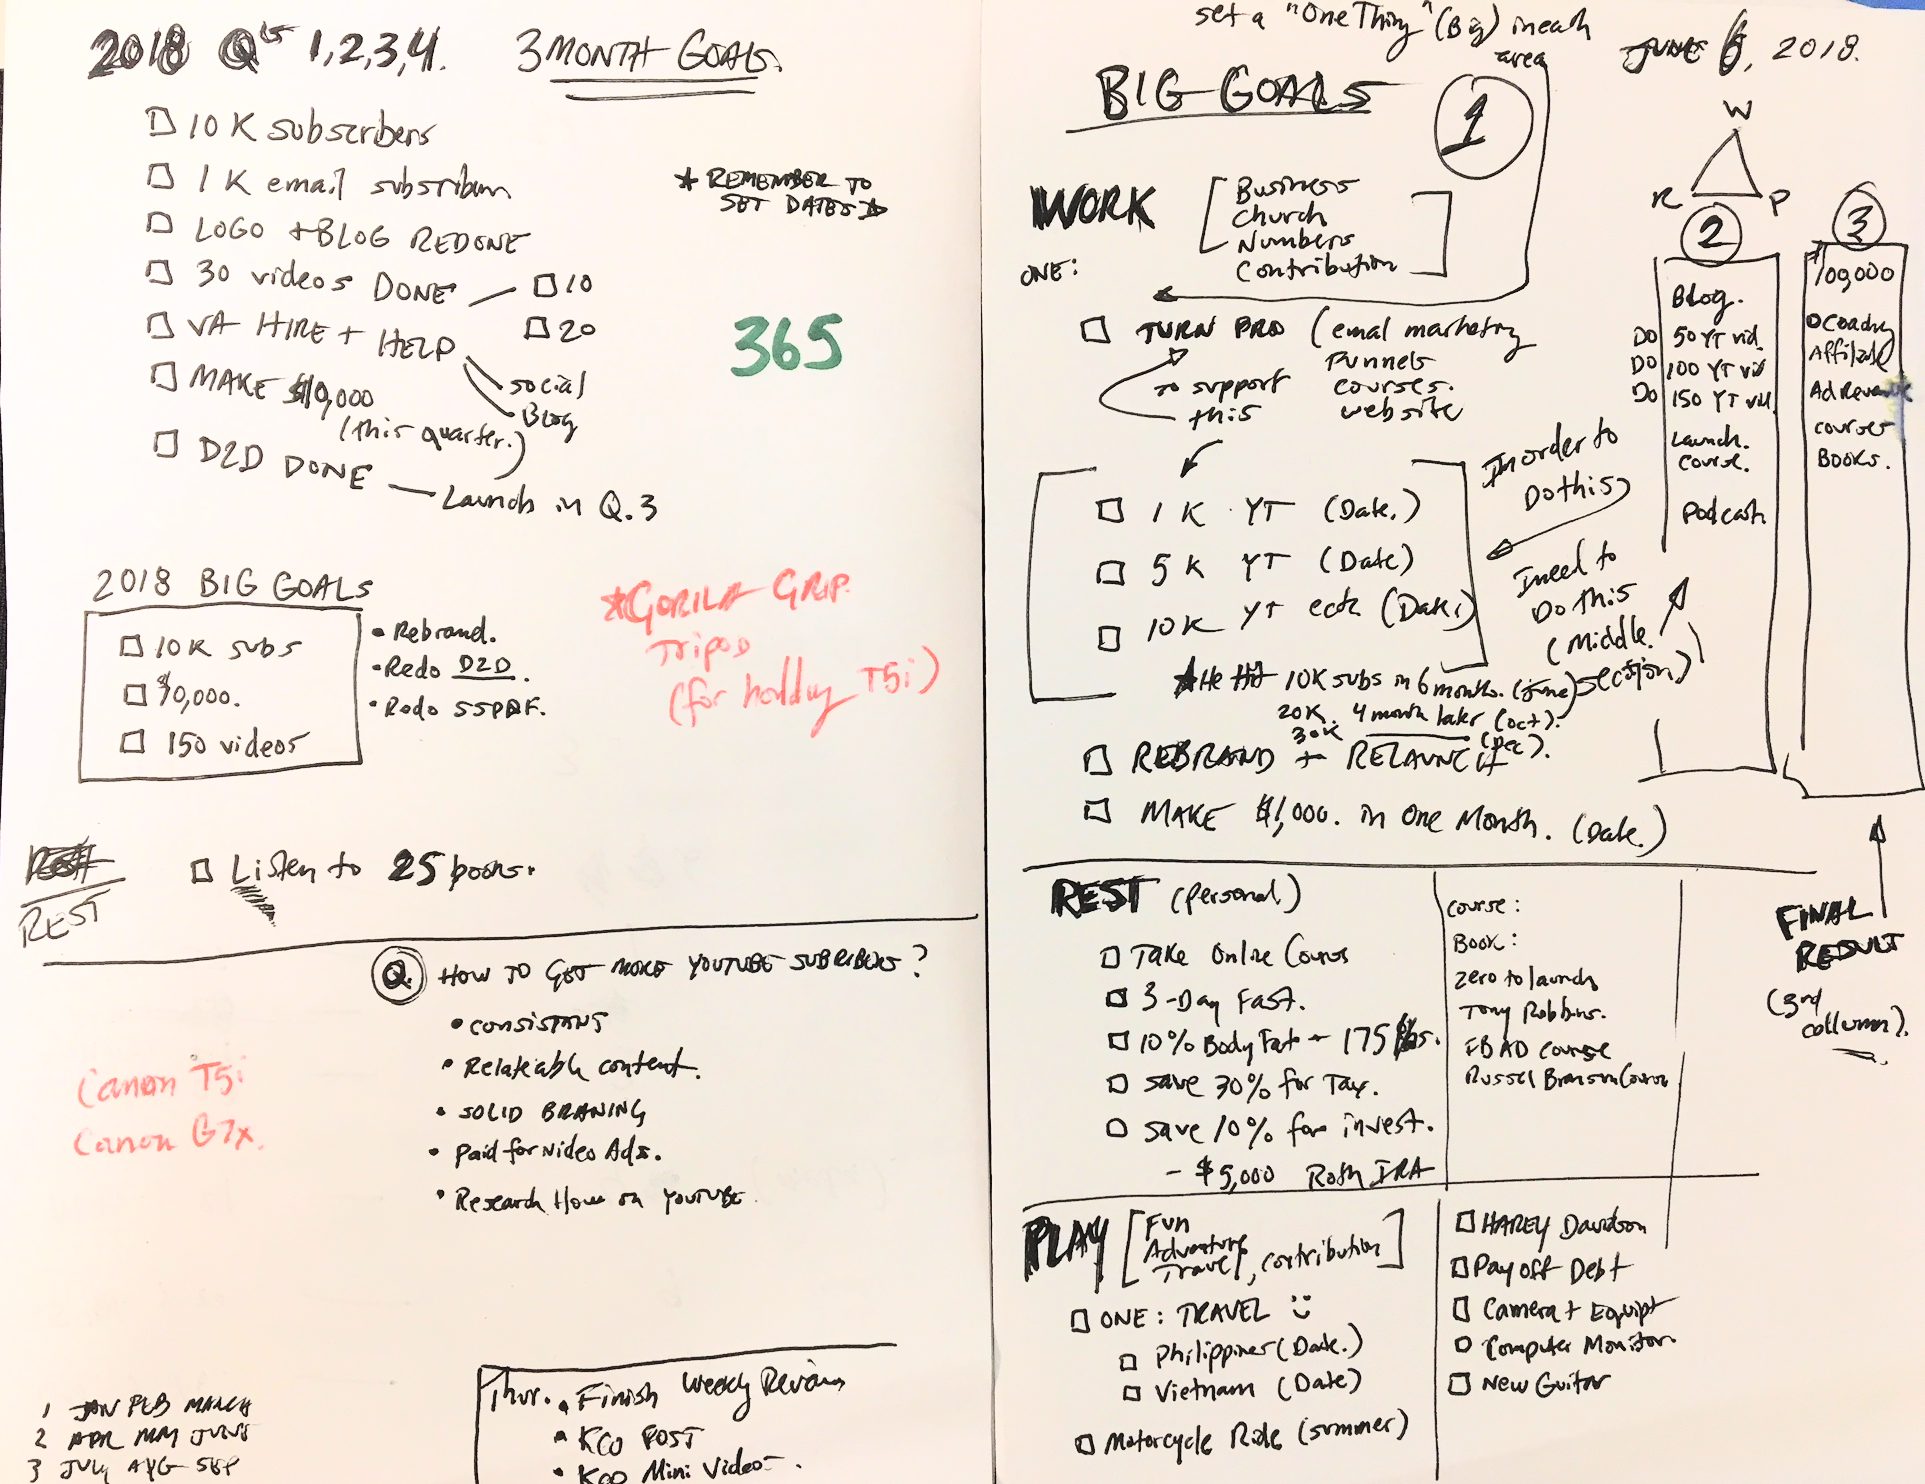 2018 Qs 1,2,3,4. 3 MONTH GOALS.
10K subscribers
1K email
LOGO + BLOG REDONE
30 videos DONE
10
20
VA HIRE + HELP
social
BLOG
MAKE $10,000
(this quarter.)
D2D DONE
Launch in Q.3
* REMEMBER TO
SET DATES *
365
2018 BIG GOALS
10K subs
$10,000.
150 videos
• Rebrand.
• Redo D2D.
• Redo
*GORILA GRIP
Tripod
(for holding T5i)
REST
Listen to 25 books.
Q. HOW TO GET MORE YOUTUBE SUBRIBERS?
• CONSISTANS
• Relateable content.
• SOLID BRANING
• Paid for video Ads.
• Research How on YOUTUBE.
Canon T5i
Canon G7x.
1 JAN FEB MARCH
2 APR MAY JUNE
3 JULY AUG SEP
Thur. • Finish Weekly Review
• KCO POST
• KCO Mini Video
set a "One Thing" (Big) in each
area
JUNE 6, 2018.
BIG GOALS
1
W
R P
WORK
Business
Church
Numbers
Contribution
ONE:
TURN PRO (email marketing
Funnels
courses.
website
to support
this
In order to
Do this
1K YT (Date.)
5K YT (Date)
10K YT ect (Date.)
I need to
Do this
(Middle
section)
*He Hit 10K subs in 6 months. (june)
20K. 4 month later (oct).
30K (Dec).
REBRAND + RELAUNCH
MAKE $1,000. in One Month. (Date.)
2
Blog.
Do 50 YT vid.
Do 100 YT vid
Do 150 YT vid.
Launch.
Course.
Podcast
3
100,000
Coaching
Affiliate
Ad Revenue
courses
BOOKS.
FINAL
RESULT
(3rd
collumn).
REST (personal)
Take Online Course
3-Day Fast.
10% Body Fat - 175 lbs.
save 30% for Tax.
save 10% for invest.
- $5,000 Roth IRA
course:
Book:
Zero to launch
Tony Robbins.
FB AD course
Russel Brunson Course
PLAY
Fun
Adventure
Travel, contribution
ONE: TRAVEL
Philippines (Date.)
Vietnam (Date)
Motorcycle Ride (summer)
HARLEY Davidson
Pay off Debt
Camera + Equipt
Computer Monitor.
New Guitar